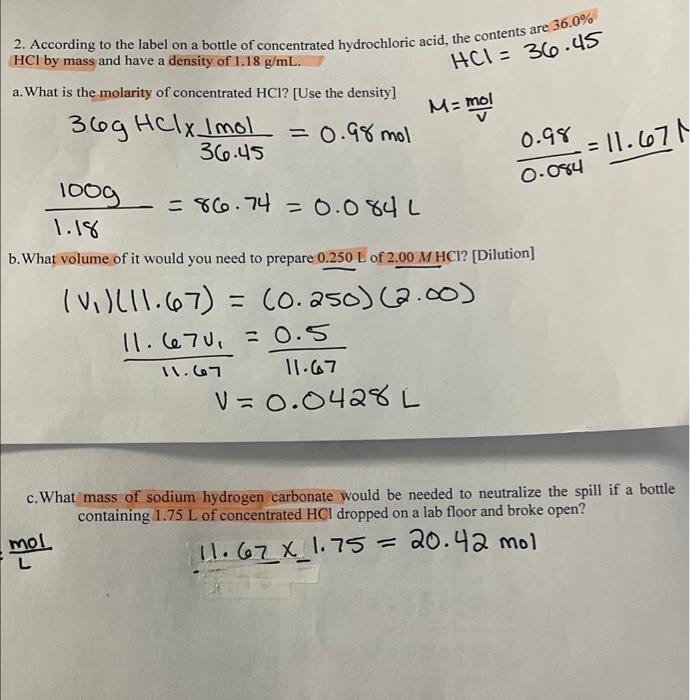 2. According to the label on a bottle of concentrated hydrochloric acid, the contents are 36.0%
HCl by mass and have a density of 1.18 g/mL.
HCl = 36.45
a. What is the molarity of concentrated HCl? [Use the density]
M = mol/V
36g HCl x 1mol/36.45 = 0.98 mol
0.98/0.084 = 11.67 M
100g/1.18 = 86.74 = 0.084 L
b. What volume of it would you need to prepare 0.250 L of 2.00 M HCl? [Dilution]
(V₁)(11.67) = (0.250)(2.00)
11.67V₁/11.67 = 0.5/11.67
V = 0.0428 L
c. What mass of sodium hydrogen carbonate would be needed to neutralize the spill if a bottle
containing 1.75 L of concentrated HCl dropped on a lab floor and broke open?
mol/L
11.67 x 1.75 = 20.42 mol